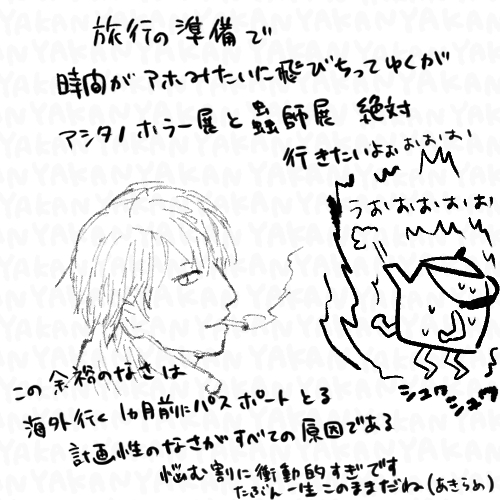 旅行の準備で
時間がアホみたいに飛びちってゆくが
アシタノホラー展と蟲師展 絶対
行きたいよおぉぉぉぉ
うおおおおおお
シュワシュワ
この余裕のなさは
海外行く1ヵ月前にパスポートとる
計画性のなさがすべての原因である
悩む割に衝動的すぎです
たぶん一生このままだね(あきらめ)
YAKAN